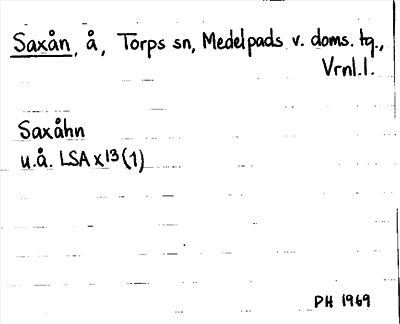 Saxån, å, Torps sn, Medelpads v. doms. tg.,
Vrnl.l.
Saxåhn
u.å. LSA X13(1)
PH 1969